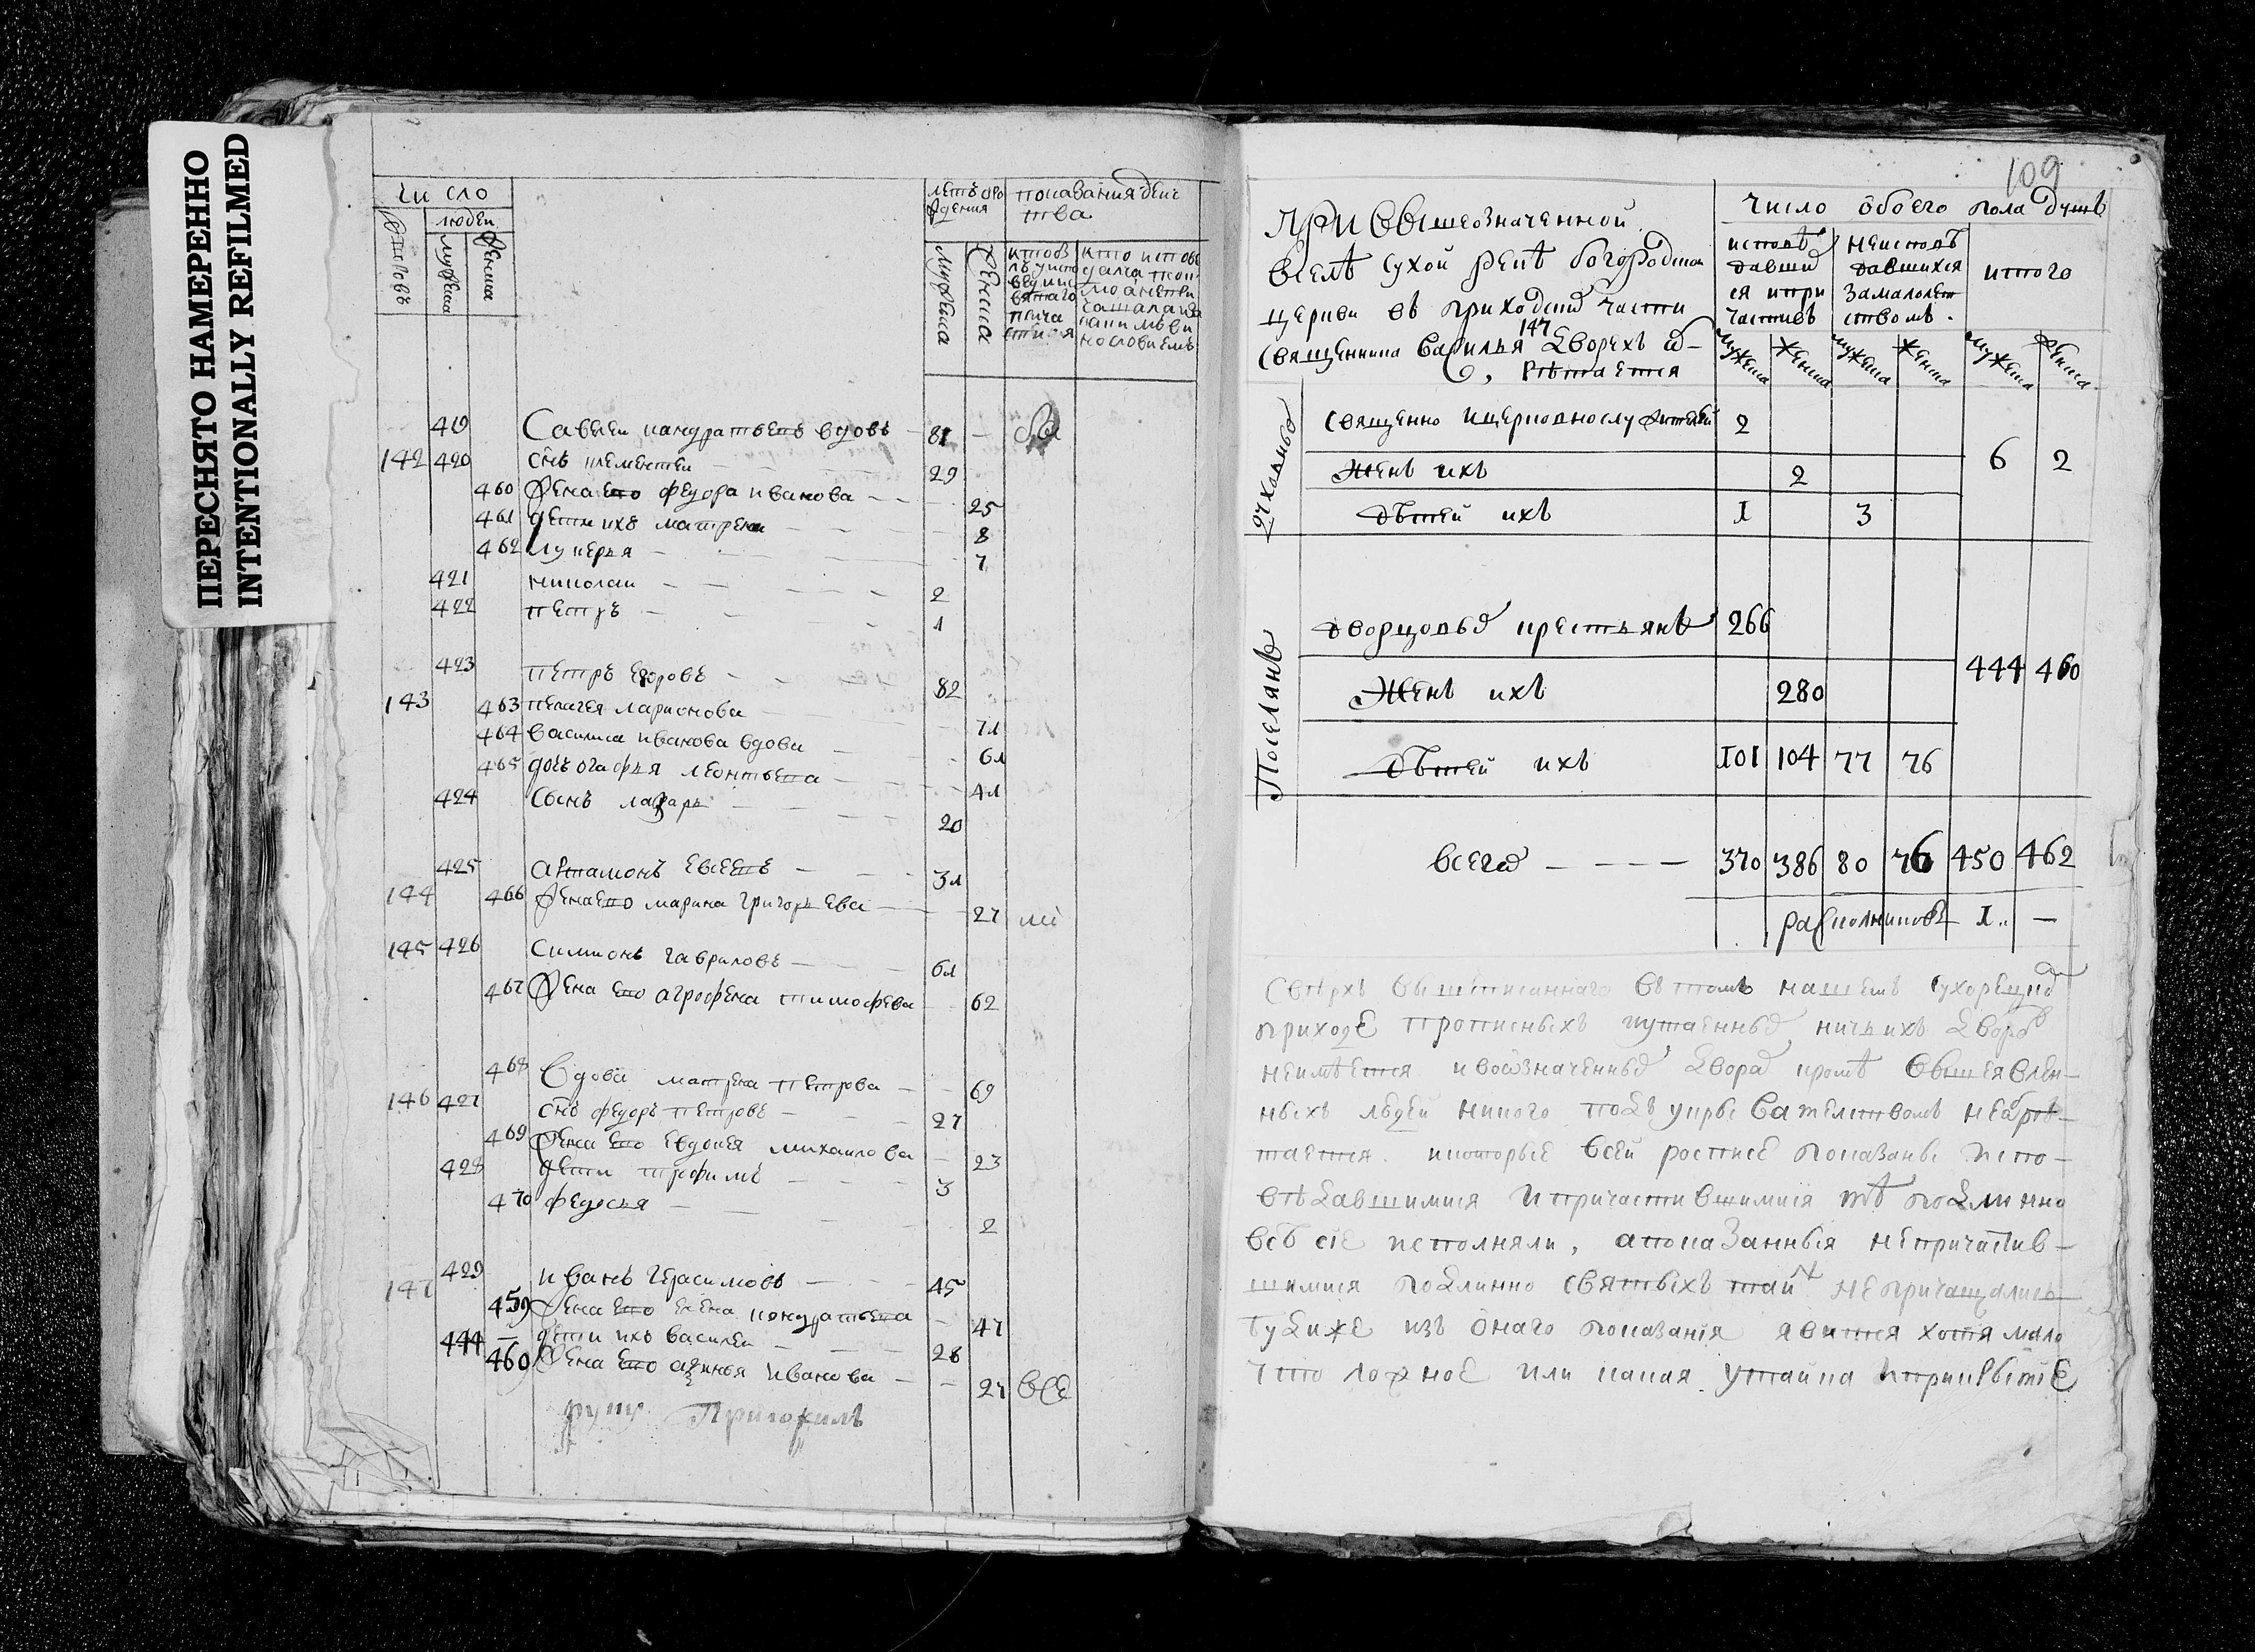 ПЕРЕСНЯТО НАМЕРЕННО
INTENTIONALLY REFILMED
число
людеи
дворовъ
мужеска
женска
летъ от рождения
показания деиства
мужеска
женска
419 Савелеи кандратьевъ вдовъ — 81 —
142 420 снъ клементеи 29
460 жена ево федора иванова — 25
461 дети ихъ матрена 8
462 лукерья 7
421 николаи 2
422 петръ 1
423 петръ егоровъ 82
143 463 пелагея ларионова 71
464 василиса иванова вдова 61
465 огафья леонтьева 41
424 сынъ лазарь 20
425 артамонъ евсеевъ 31
144 466 жена ево марина григорьева 27
145 426 симионъ гавриловъ 61
467 жена ево агрофена тимофева 62
468 вдова матрена петрова 69
146 427 снъ федоръ петровъ 27
469 жена ево евдокея михаилова 23
428 дети трофимъ 3
470 федосья 2
147 429 иванъ герасимовъ 45
459 жена ево елена кондратьева 47
444 дети ихъ василеи 28
460 жена ево аксинья иванова 27 все
руку Приложилъ
109
При вышеозначенной
в селѣ Сухой рекѣ богородицкой
церкви въ приходской части
священника Василья 147 дворехъ об-
рѣтается
число обоего пола душъ
исповѣдавшихся и причастивъ
неисповѣдавшихся за малолетствомъ
итого
мужеска женска мужеска женска мужеска женска
духовные
священно и церковнослужителей 2
женъ ихъ 2
6 2
дѣтей ихъ 1 3
Поселянъ
дворцовые крестьянъ 266
444 460
женъ ихъ 280
дѣтей ихъ 101 104 77 76
всего — — — — 370 386 80 76 450 462
раскольниковъ 1 —
Сверхъ вышеписаннаго въ томъ нашемъ сухорецкой
приходе прописныхъ и утаенные ничьихъ дворов
неимѣется и в означенные двора кромѣ выше явлен-
ныхъ людей никого подъ укрывательствомъ не обрѣ-
тается. и которые в сей росписе показаны испо-
вѣдавшимися и причастившимися тѣ подлинно
все сіе исполняли, а показанныя непричастив-
шимися подлинно святыхъ тайн не причащались
буди же изъ онаго показания явится хотя мало
что ложное или какая утайка и прикрытіе